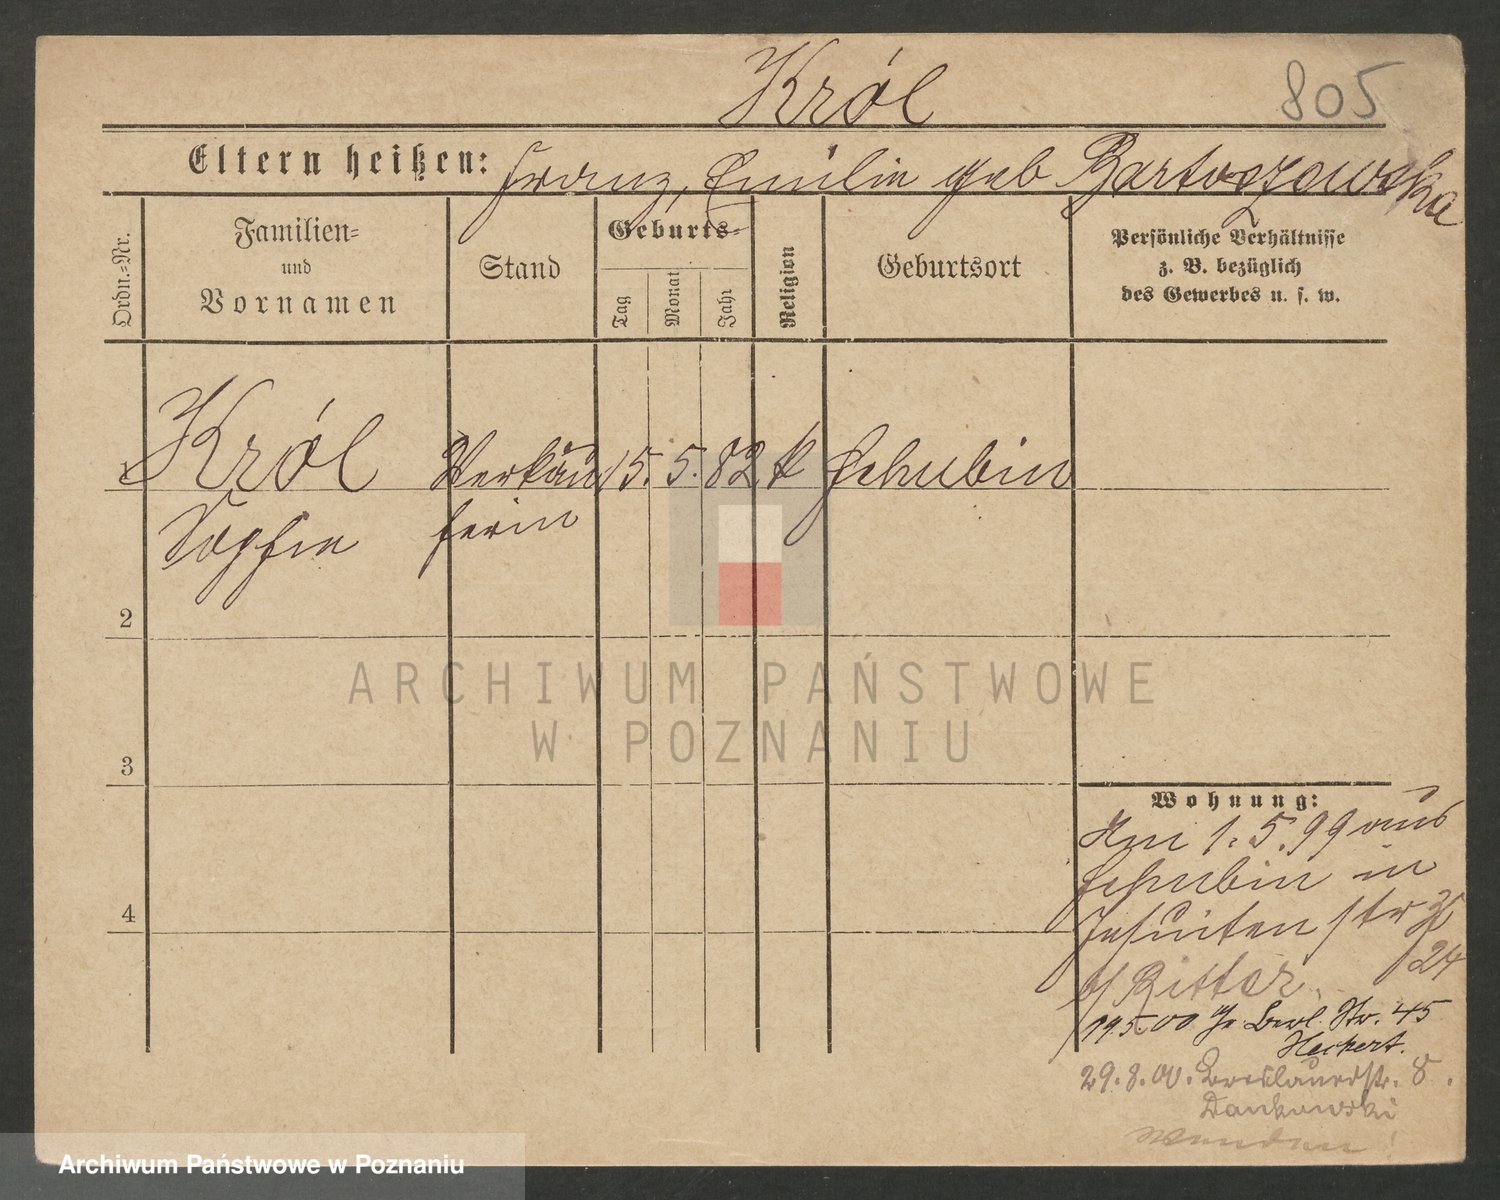 Król
805
Eltern heißen: Franz, Emilie geb Bartoszowska
Ordn.-Nr.
Familien-
und
Vornamen
Stand
Geburts-
Tag
Monat
Jahr
Religion
Geburtsort
Persönliche Verhältnisse
z. B. bezüglich
des Gewerbes u. s. w.
1 Król Verkäu 15. 5. 82 k Schubin
Sophie ferin
2
3
4
Wohnung:
Am 1. 5. 99 aus
Schubin in
Jesuitenstr
24
b/ Ritter.
19.5.00 Berl. Str. 45
Heckert.
29.8.00. Breslauerstr. 8.
Dankowski
ARCHIWUM PAŃSTWOWE
W POZNANIU
Archiwum Państwowe w Poznaniu